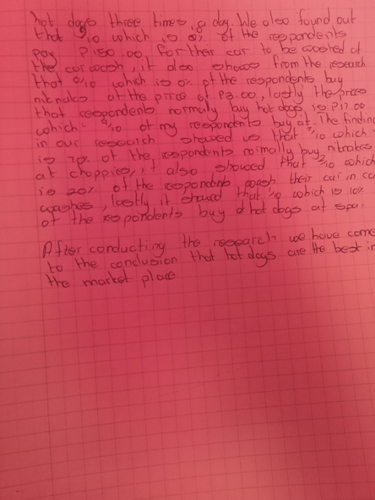 hot dogs three times a day. We also found out
that /10 which is 0% of the respondents
pay P150.00 for their car to be washed at
the car wash, it also shows from the research
that 0/10 which is 0% of the respondents buy
niknaks at the price of P3.00, lastly the price
that respondents normaly buy hot dogs is P17.00
which /10 of my respondents buy at. The finding
in our research showed us that /10 which
is 70% of the respondents normally buy nitnakes
at choppies, it also showed that /10 which
is 20% of the respondents wash their car in car
washes, lastly it showed that /10 which is 10%
of the respondents buy hot dogs at spa.
After conducting the research we have come
to the conclusion that hot dogs are the best in
the market place